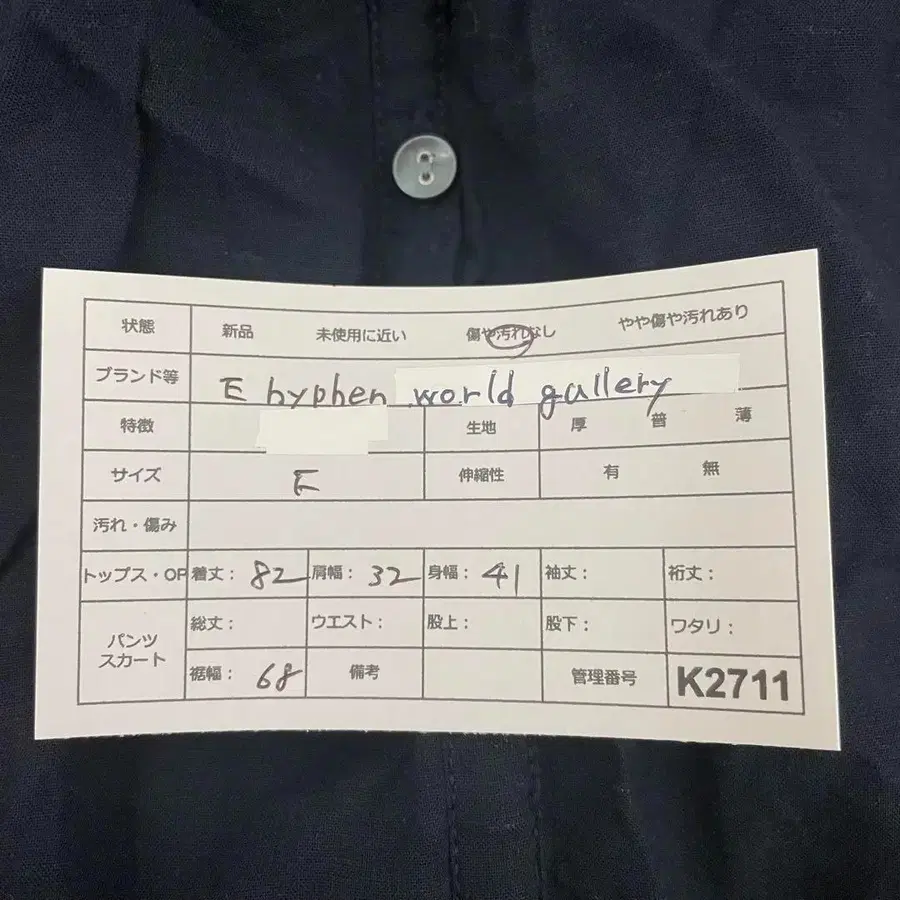 状態 新品 未使用に近い 傷や汚れなし やや傷や汚れあり
ブランド等 E hyphen world gallery
特徴 生地 厚 普 薄
サイズ F 伸縮性 有 無
汚れ・傷み
トップス・OP 着丈: 82 肩幅: 32 身幅: 41 袖丈: 裄丈:
パンツ スカート 総丈: ウエスト: 股上: 股下: ワタリ:
裾幅: 68 備考 管理番号 K2711